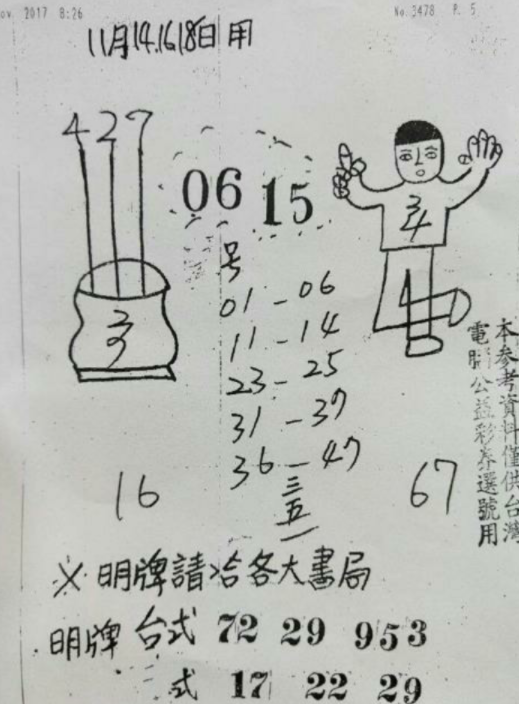 2017 8:26
No.3478 P. 5
11月14.16.18日用
4 2 7
06 15
号
01-06
11-14
23-25
31-37
36-47
三
五
16
67
本參考資料僅供台灣
電腦公益彩券選號用
※ 明牌請洽各大書局
明牌 台式 72 29 953
式 17 22 29